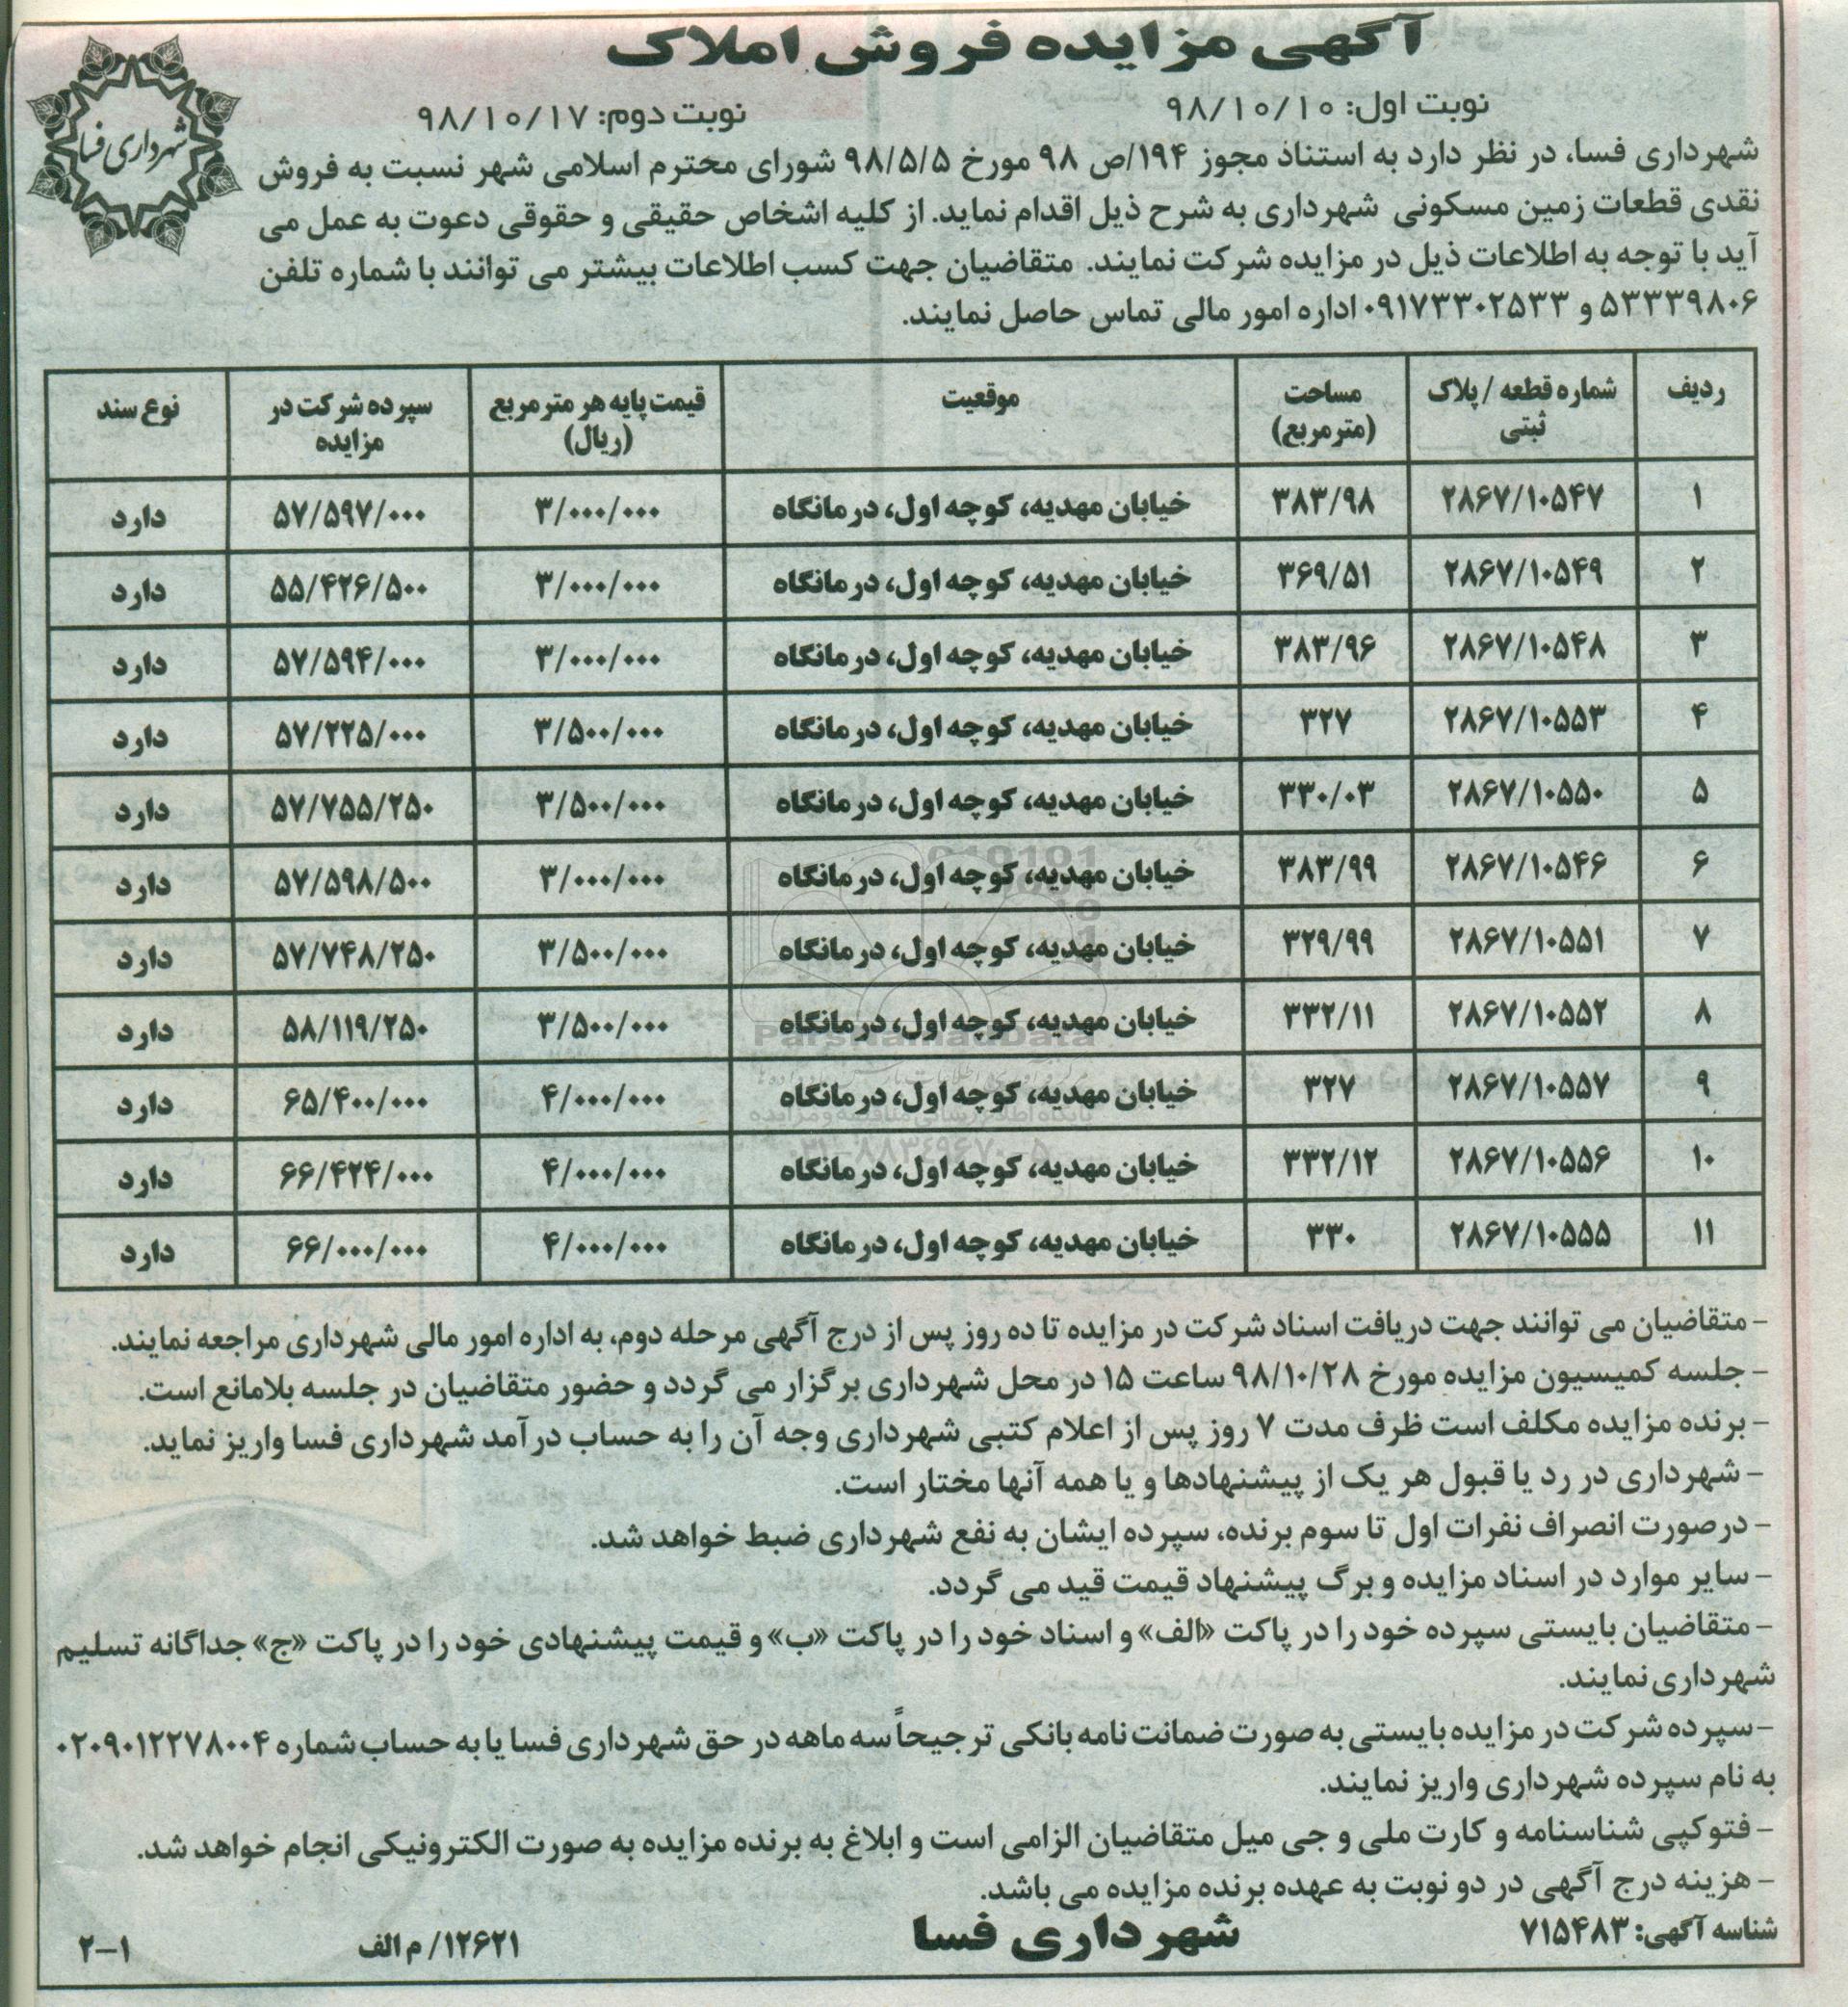 آگهی مزایده فروش املاک
شهرداری فسا
نوبت اول: ۹۸/۱۰/۱۰
نوبت دوم: ۹۸/۱۰/۱۷
شهرداری فسا، در نظر دارد به استناد مجوز ۱۹۴/ص ۹۸ مورخ ۹۸/۵/۵ شورای محترم اسلامی شهر نسبت به فروش
نقدی قطعات زمین مسکونی شهرداری به شرح ذیل اقدام نماید. از کلیه اشخاص حقیقی و حقوقی دعوت به عمل می
آید با توجه به اطلاعات ذیل در مزایده شرکت نمایند. متقاضیان جهت کسب اطلاعات بیشتر می توانند با شماره تلفن
۵۳۳۳۹۸۰۶ و ۰۹۱۷۳۳۰۲۵۳۳ اداره امور مالی تماس حاصل نمایند.
ردیف | شماره قطعه / پلاک ثبتی | مساحت (مترمربع) | موقعیت | قیمت پایه هر مترمربع (ریال) | سپرده شرکت در مزایده | نوع سند
۱ | ۲۸۶۷/۱۰۵۴۷ | ۳۸۳/۹۸ | خیابان مهدیه، کوچه اول، درمانگاه | ۳/۰۰۰/۰۰۰ | ۵۷/۵۹۷/۰۰۰ | دارد
۲ | ۲۸۶۷/۱۰۵۴۹ | ۳۶۹/۵۱ | خیابان مهدیه، کوچه اول، درمانگاه | ۳/۰۰۰/۰۰۰ | ۵۵/۴۲۶/۵۰۰ | دارد
۳ | ۲۸۶۷/۱۰۵۴۸ | ۳۸۳/۹۶ | خیابان مهدیه، کوچه اول، درمانگاه | ۳/۰۰۰/۰۰۰ | ۵۷/۵۹۴/۰۰۰ | دارد
۴ | ۲۸۶۷/۱۰۵۵۳ | ۳۲۷ | خیابان مهدیه، کوچه اول، درمانگاه | ۳/۵۰۰/۰۰۰ | ۵۷/۲۲۵/۰۰۰ | دارد
۵ | ۲۸۶۷/۱۰۵۵۰ | ۳۳۰/۰۳ | خیابان مهدیه، کوچه اول، درمانگاه | ۳/۵۰۰/۰۰۰ | ۵۷/۷۵۵/۲۵۰ | دارد
۶ | ۲۸۶۷/۱۰۵۴۶ | ۳۸۳/۹۹ | خیابان مهدیه، کوچه اول، درمانگاه | ۳/۰۰۰/۰۰۰ | ۵۷/۵۹۸/۵۰۰ | دارد
۷ | ۲۸۶۷/۱۰۵۵۱ | ۳۲۹/۹۹ | خیابان مهدیه، کوچه اول، درمانگاه | ۳/۵۰۰/۰۰۰ | ۵۷/۷۴۸/۲۵۰ | دارد
۸ | ۲۸۶۷/۱۰۵۵۲ | ۳۳۲/۱۱ | خیابان مهدیه، کوچه اول، درمانگاه | ۳/۵۰۰/۰۰۰ | ۵۸/۱۱۹/۲۵۰ | دارد
۹ | ۲۸۶۷/۱۰۵۵۷ | ۳۲۷ | خیابان مهدیه، کوچه اول، درمانگاه | ۴/۰۰۰/۰۰۰ | ۶۵/۴۰۰/۰۰۰ | دارد
۱۰ | ۲۸۶۷/۱۰۵۵۶ | ۳۳۲/۱۲ | خیابان مهدیه، کوچه اول، درمانگاه | ۴/۰۰۰/۰۰۰ | ۶۶/۴۲۴/۰۰۰ | دارد
۱۱ | ۲۸۶۷/۱۰۵۵۵ | ۳۳۰ | خیابان مهدیه، کوچه اول، درمانگاه | ۴/۰۰۰/۰۰۰ | ۶۶/۰۰۰/۰۰۰ | دارد
ParsNamadData
پایگاه اطلاع رسانی مناقصه و مزایده
- متقاضیان می توانند جهت دریافت اسناد شرکت در مزایده تا ده روز پس از درج آگهی مرحله دوم، به اداره امور مالی شهرداری مراجعه نمایند.
- جلسه کمیسیون مزایده مورخ ۹۸/۱۰/۲۸ ساعت ۱۵ در محل شهرداری برگزار می گردد و حضور متقاضیان در جلسه بلامانع است.
- برنده مزایده مکلف است ظرف مدت ۷ روز پس از اعلام کتبی شهرداری وجه آن را به حساب درآمد شهرداری فسا واریز نماید.
- شهرداری در رد یا قبول هر یک از پیشنهادها و یا همه آنها مختار است.
- درصورت انصراف نفرات اول تا سوم برنده، سپرده ایشان به نفع شهرداری ضبط خواهد شد.
- سایر موارد در اسناد مزایده و برگ پیشنهاد قیمت قید می گردد.
- متقاضیان بایستی سپرده خود را در پاکت «الف» و اسناد خود را در پاکت «ب» و قیمت پیشنهادی خود را در پاکت «ج» جداگانه تسلیم
شهرداری نمایند.
- سپرده شرکت در مزایده بایستی به صورت ضمانت نامه بانکی ترجیحاً سه ماهه در حق شهرداری فسا یا به حساب شماره ۰۲۰۹۰۱۲۲۷۸۰۰۴
به نام سپرده شهرداری واریز نمایند.
- فتوکپی شناسنامه و کارت ملی و جی میل متقاضیان الزامی است و ابلاغ به برنده مزایده به صورت الکترونیکی انجام خواهد شد.
- هزینه درج آگهی در دو نوبت به عهده برنده مزایده می باشد.
شناسه آگهی: ۷۱۵۴۸۳
شهرداری فسا
۱۲۶۲۱/ م الف
۲-۱